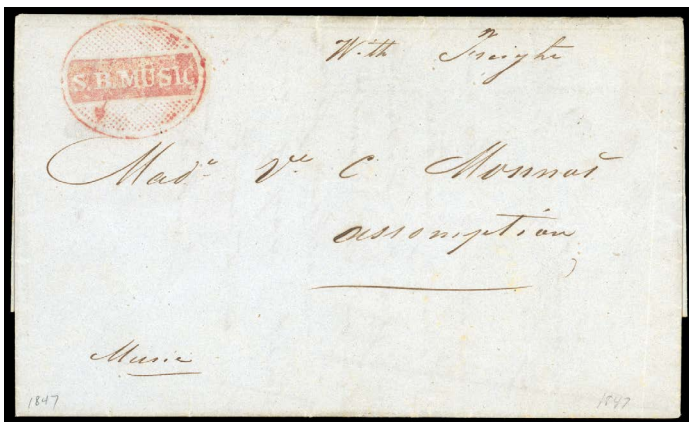 S.B.MUSIC
With Freight
Mad.e V.ve C
assomption
Music
1847
1847